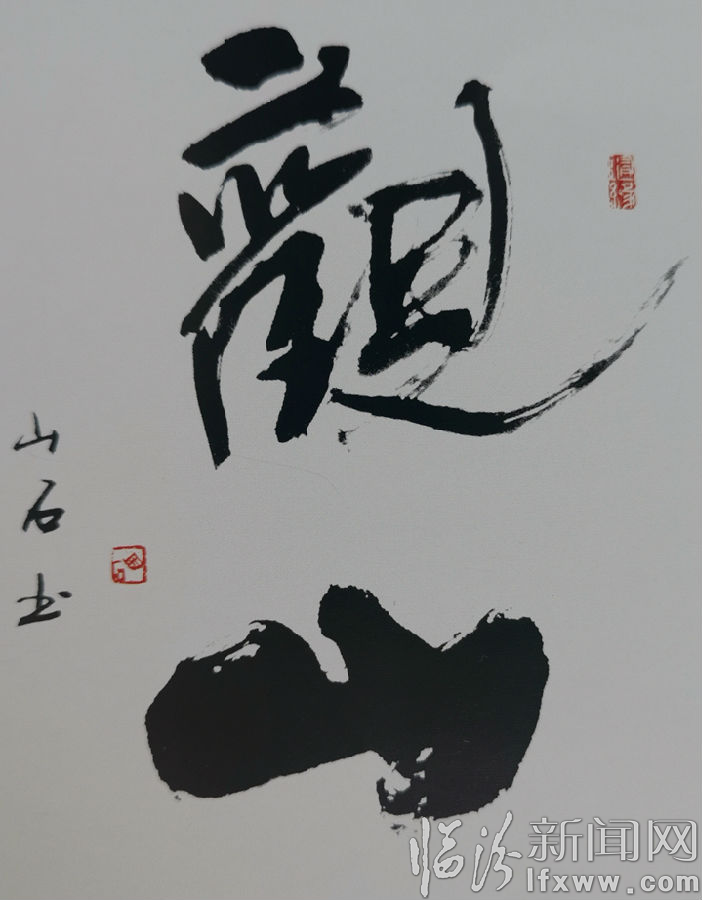 觀山
山石书
临汾新闻网
lfxww.com